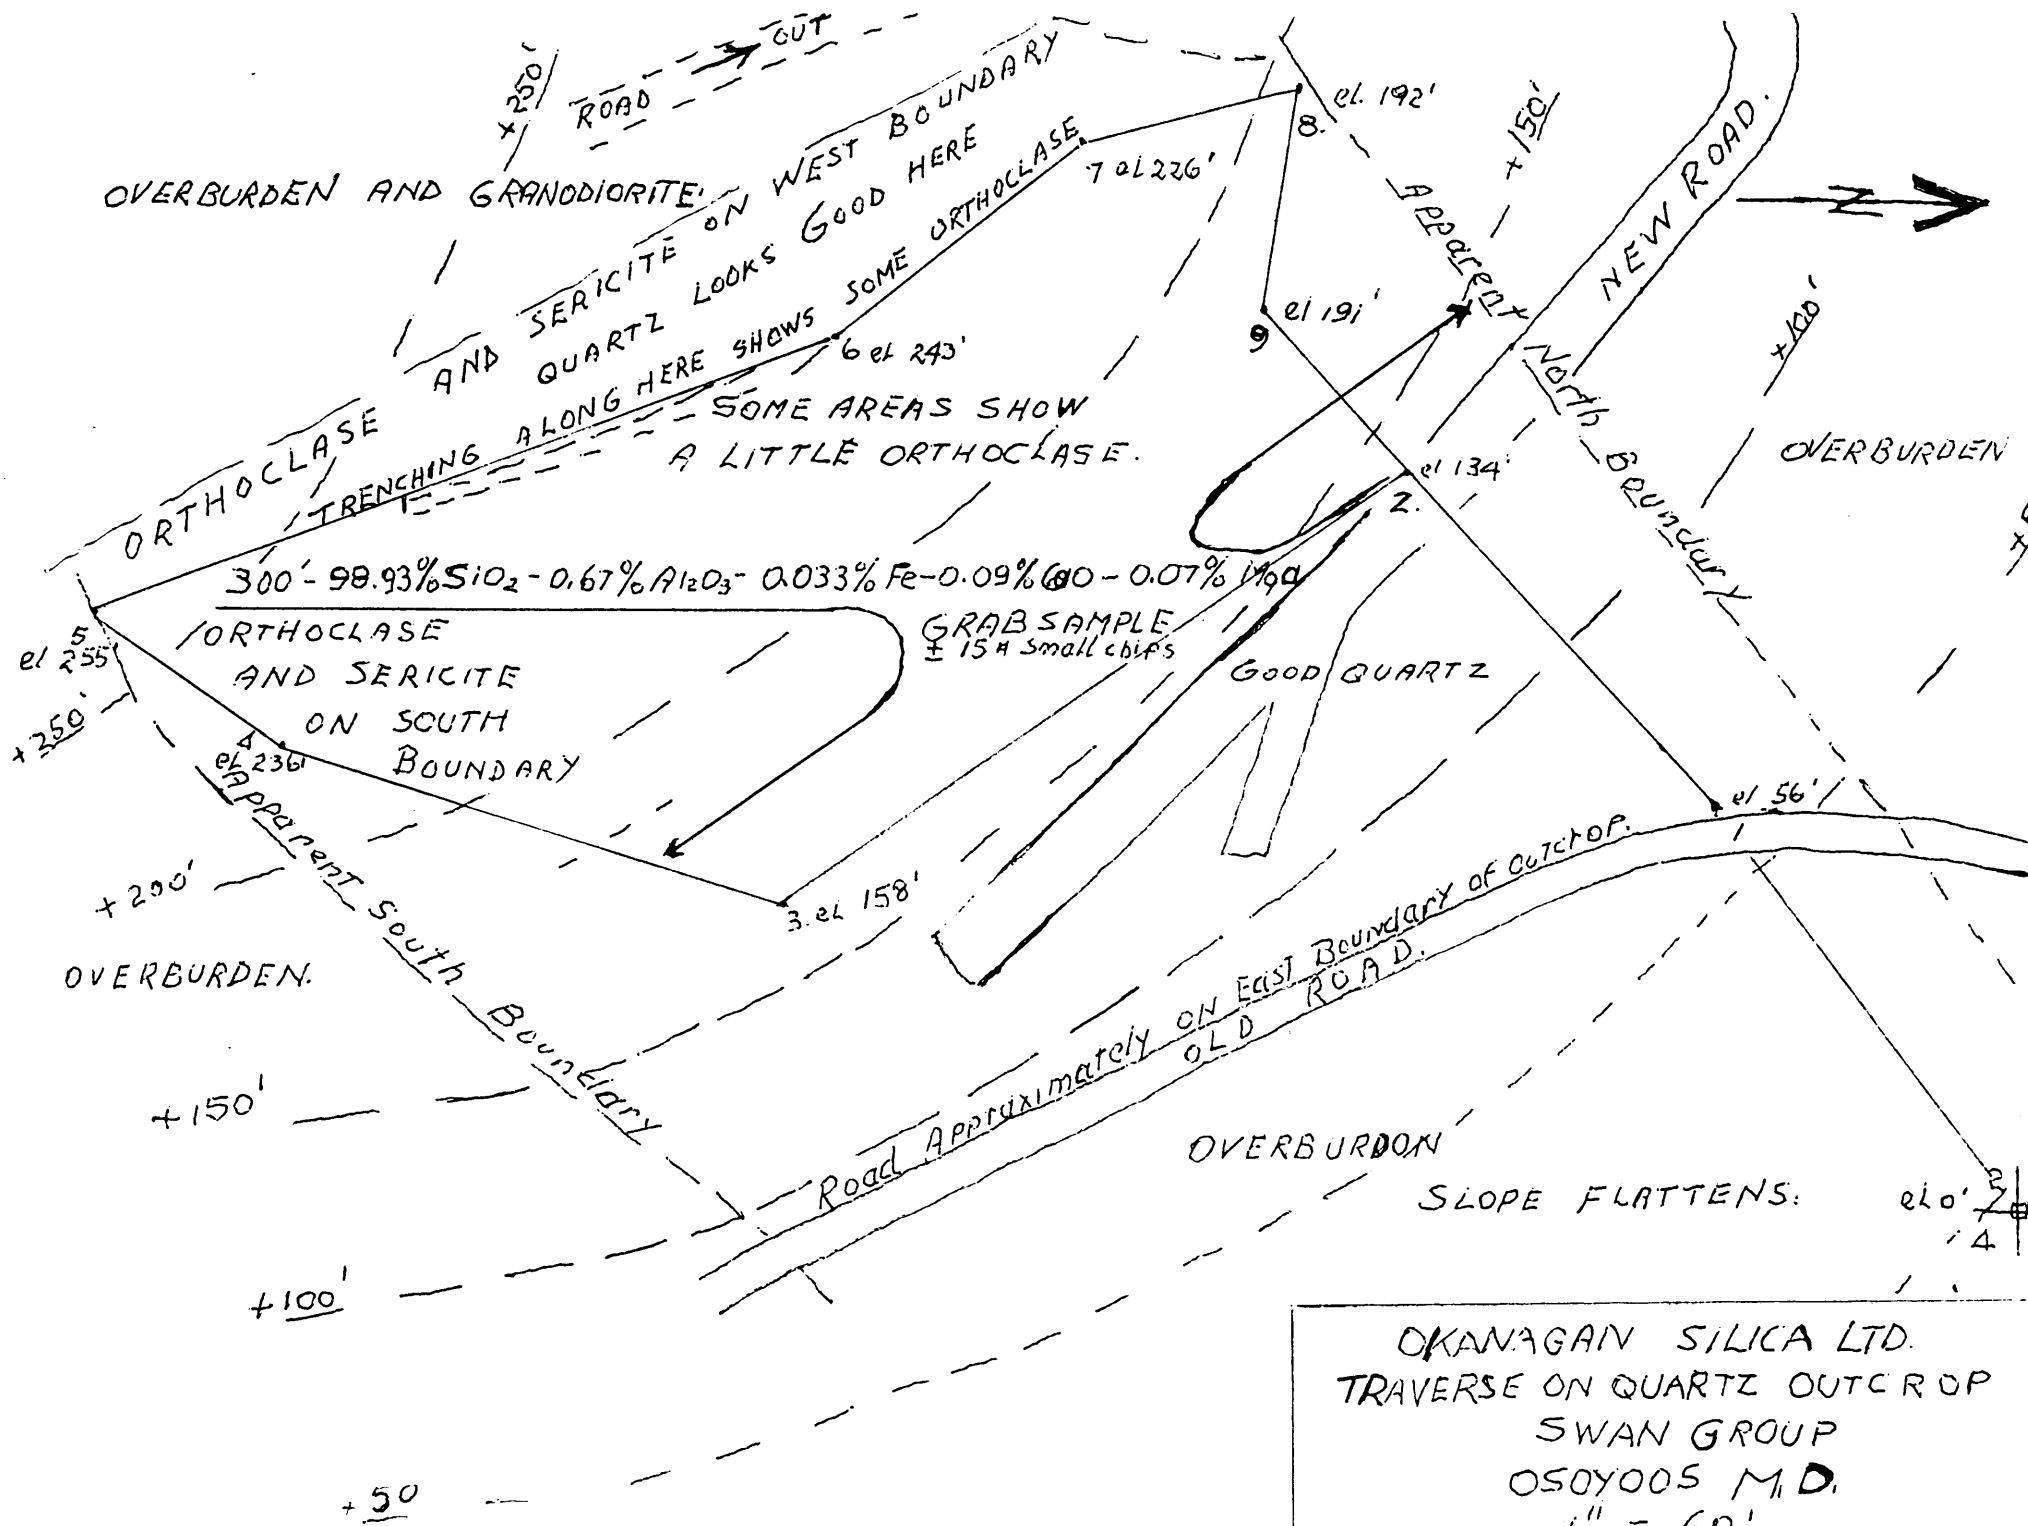 ROAD
OUT
+250'
el. 192'
8.
+150'
NEW ROAD.
OVERBURDEN AND GRANODIORITE.
ORTHOCLASE AND SERICITE ON WEST BOUNDARY
QUARTZ LOOKS GOOD HERE
TRENCHING ALONG HERE SHOWS SOME ORTHOCLASE
7 el 226'
Apparent North Boundary
Z
9
el 191'
+100'
6 el 243'
SOME AREAS SHOW
A LITTLE ORTHOCLASE.
OVERBURDEN
el 134'
2.
300'- 98.93% SiO2 - 0.67% Al2O3 - 0.033% Fe - 0.09% CaO - 0.07% MgO
GRAB SAMPLE
± 15# Small chips
ORTHOCLASE
AND SERICITE
ON SOUTH
BOUNDARY
5
el 255'
+250'
4
el 236'
GOOD QUARTZ
el 56'
+200'
Apparent South Boundary
3. el 158'
OVERBURDEN.
Road Approximately ON East Boundary OF OUTCROP.
OLD ROAD.
+150'
OVERBURDON
SLOPE FLATTENS.
el 0'
4
+100'
+50
OKANAGAN SILICA LTD.
TRAVERSE ON QUARTZ OUTCROP
SWAN GROUP
OSOYOOS M.D.